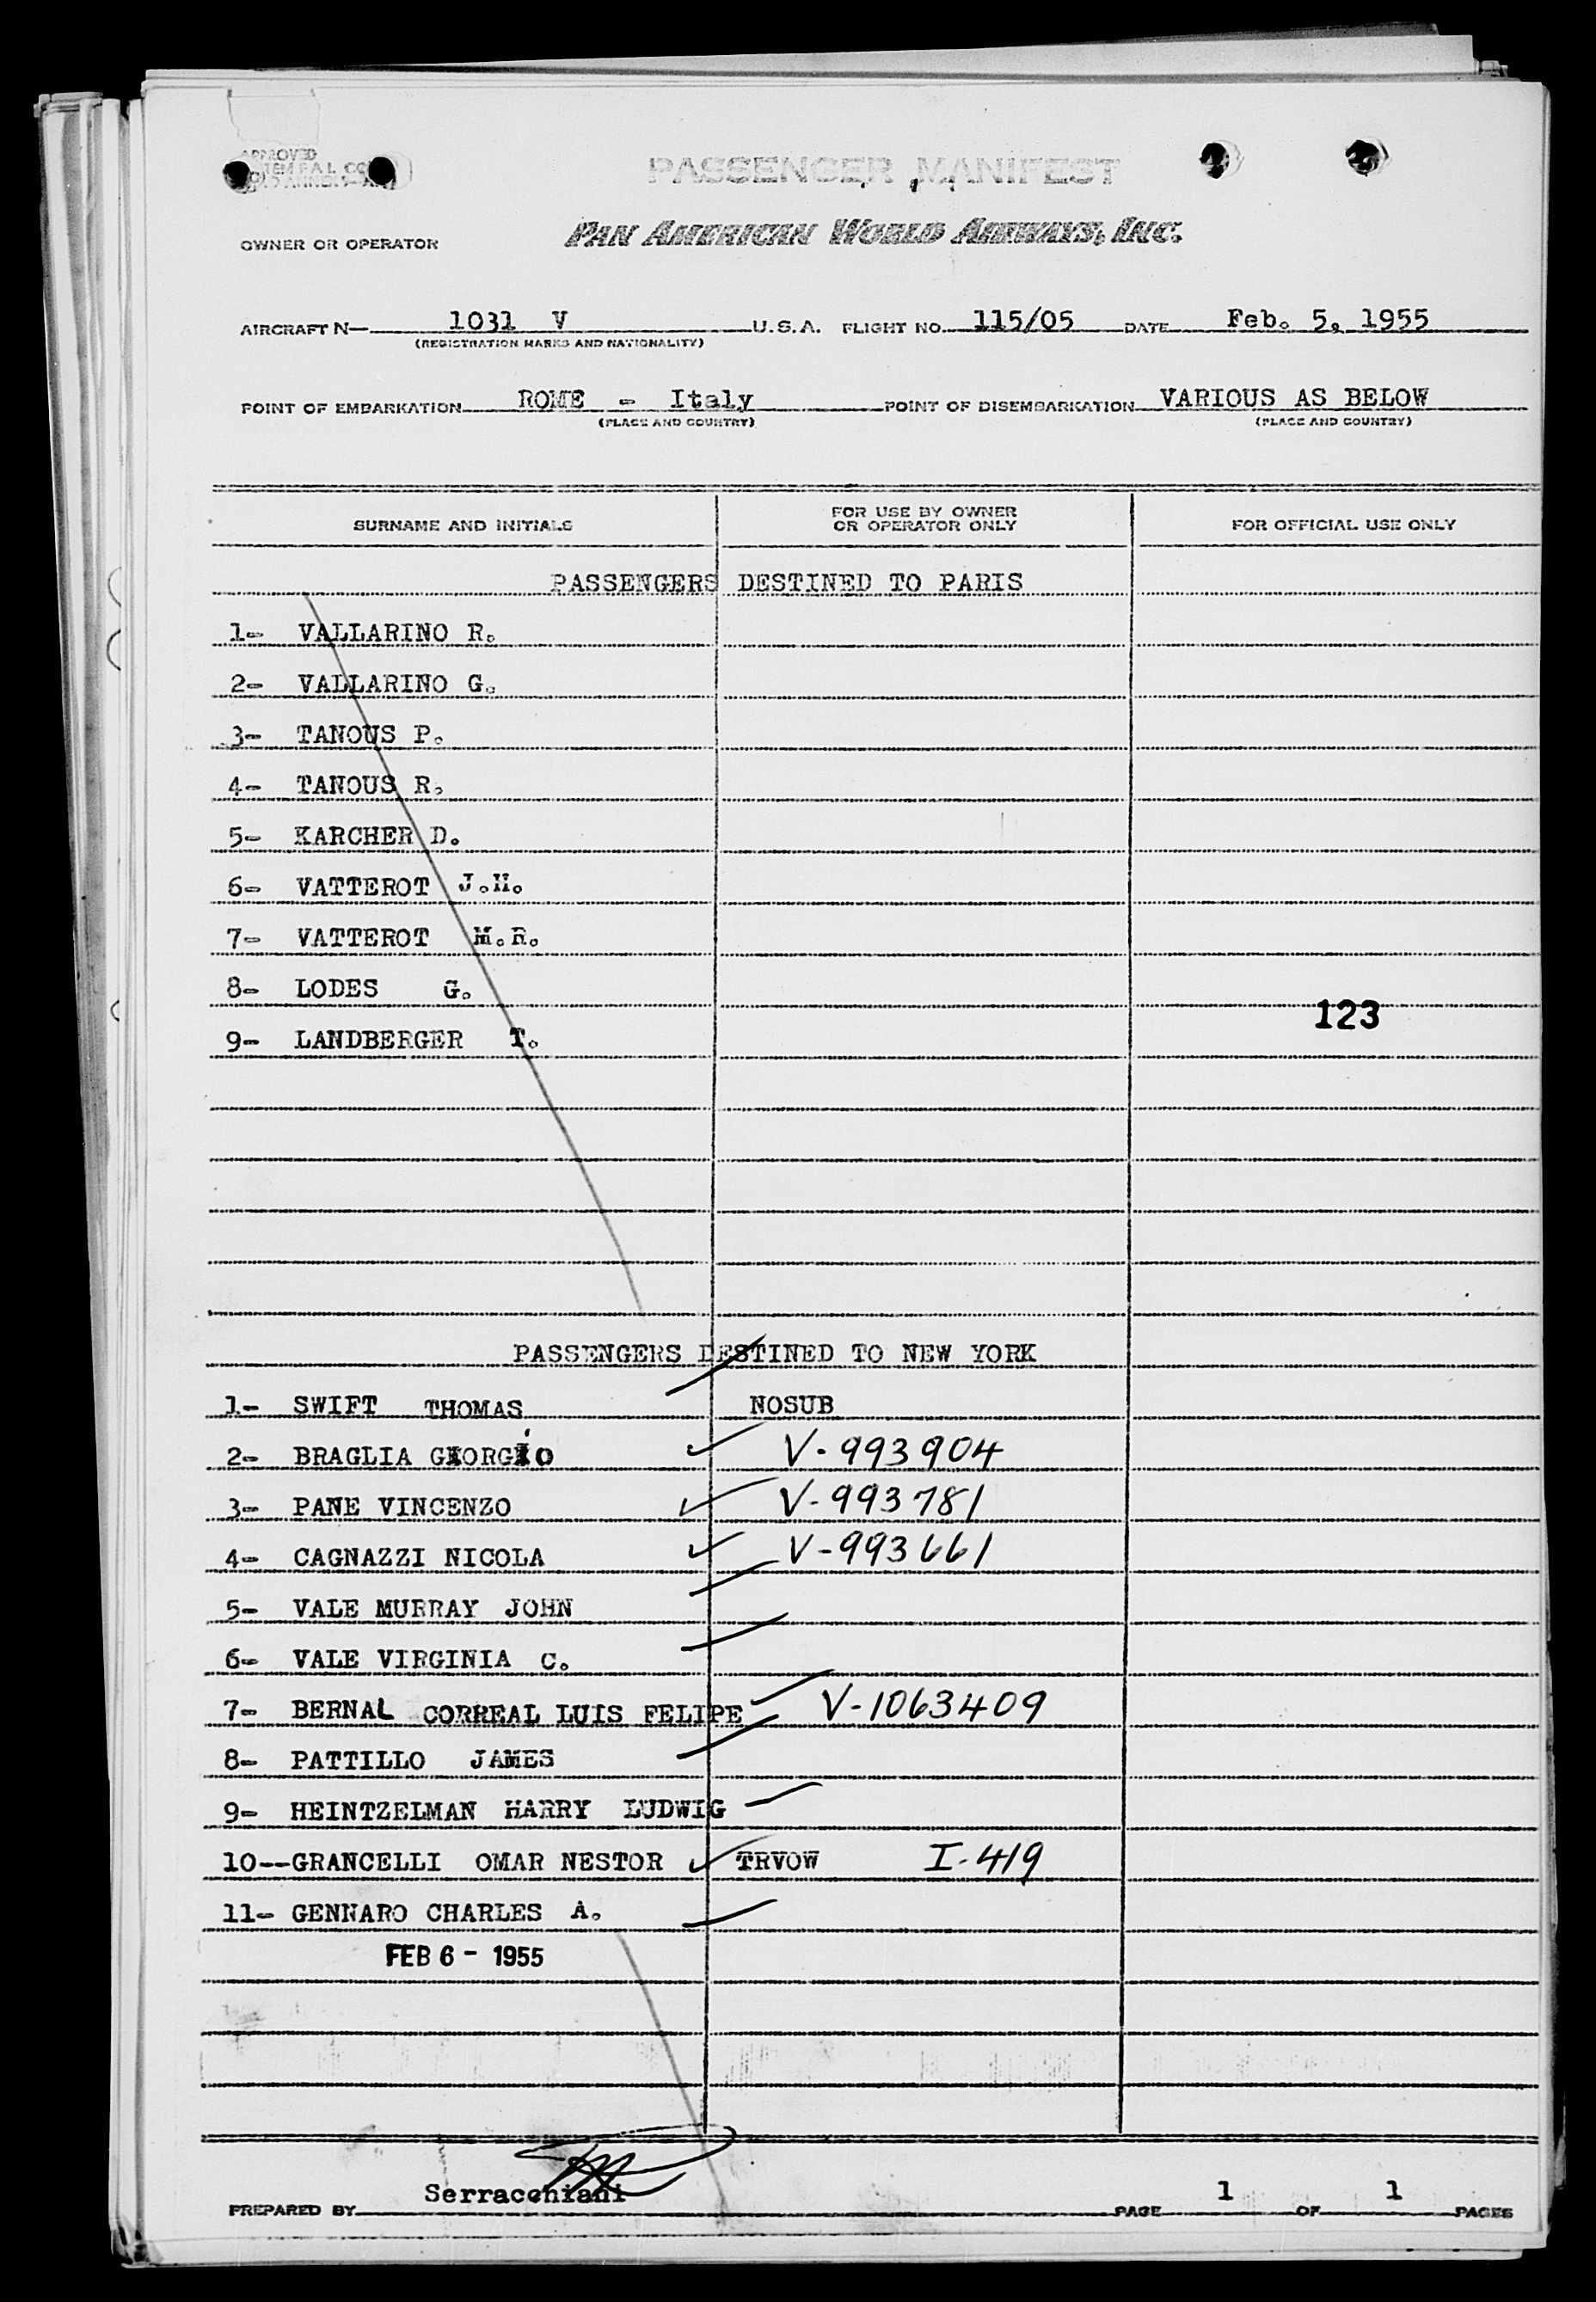 APPROVED
PASSENGER MANIFEST
OWNER OR OPERATOR PAN AMERICAN WORLD AIRWAYS, INC.
AIRCRAFT N— 1031 V U.S.A. FLIGHT NO. 115/05 DATE Feb. 5, 1955
(REGISTRATION MARKS AND NATIONALITY)
POINT OF EMBARKATION ROME - Italy POINT OF DISEMBARKATION VARIOUS AS BELOW
(PLACE AND COUNTRY) (PLACE AND COUNTRY)
SURNAME AND INITIALS FOR USE BY OWNER OR OPERATOR ONLY FOR OFFICIAL USE ONLY
PASSENGERS DESTINED TO PARIS
1- VALLARINO R.
2- VALLARINO G.
3- TANOUS P.
4- TANOUS R.
5- KARCHER D.
6- VATTEROT J.H.
7- VATTEROT M.R.
8- LODES G.
123
9- LANDBERGER T.
PASSENGERS DESTINED TO NEW YORK
1- SWIFT THOMAS NOSUB
2- BRAGLIA GIORGIO V-993904
3- PANE VINCENZO V-993781
4- CAGNAZZI NICOLA V-993661
5- VALE MURRAY JOHN
6- VALE VIRGINIA C.
7- BERNAL CORREAL LUIS FELIPE V-1063409
8- PATTILLO JAMES
9- HEINTZELMAN HARRY LUDWIG
10--GRANCELLI OMAR NESTOR TRVOW I-419
11- GENNARO CHARLES A.
FEB 6 - 1955
PREPARED BY Serracchiani PAGE 1 OF 1 PAGES